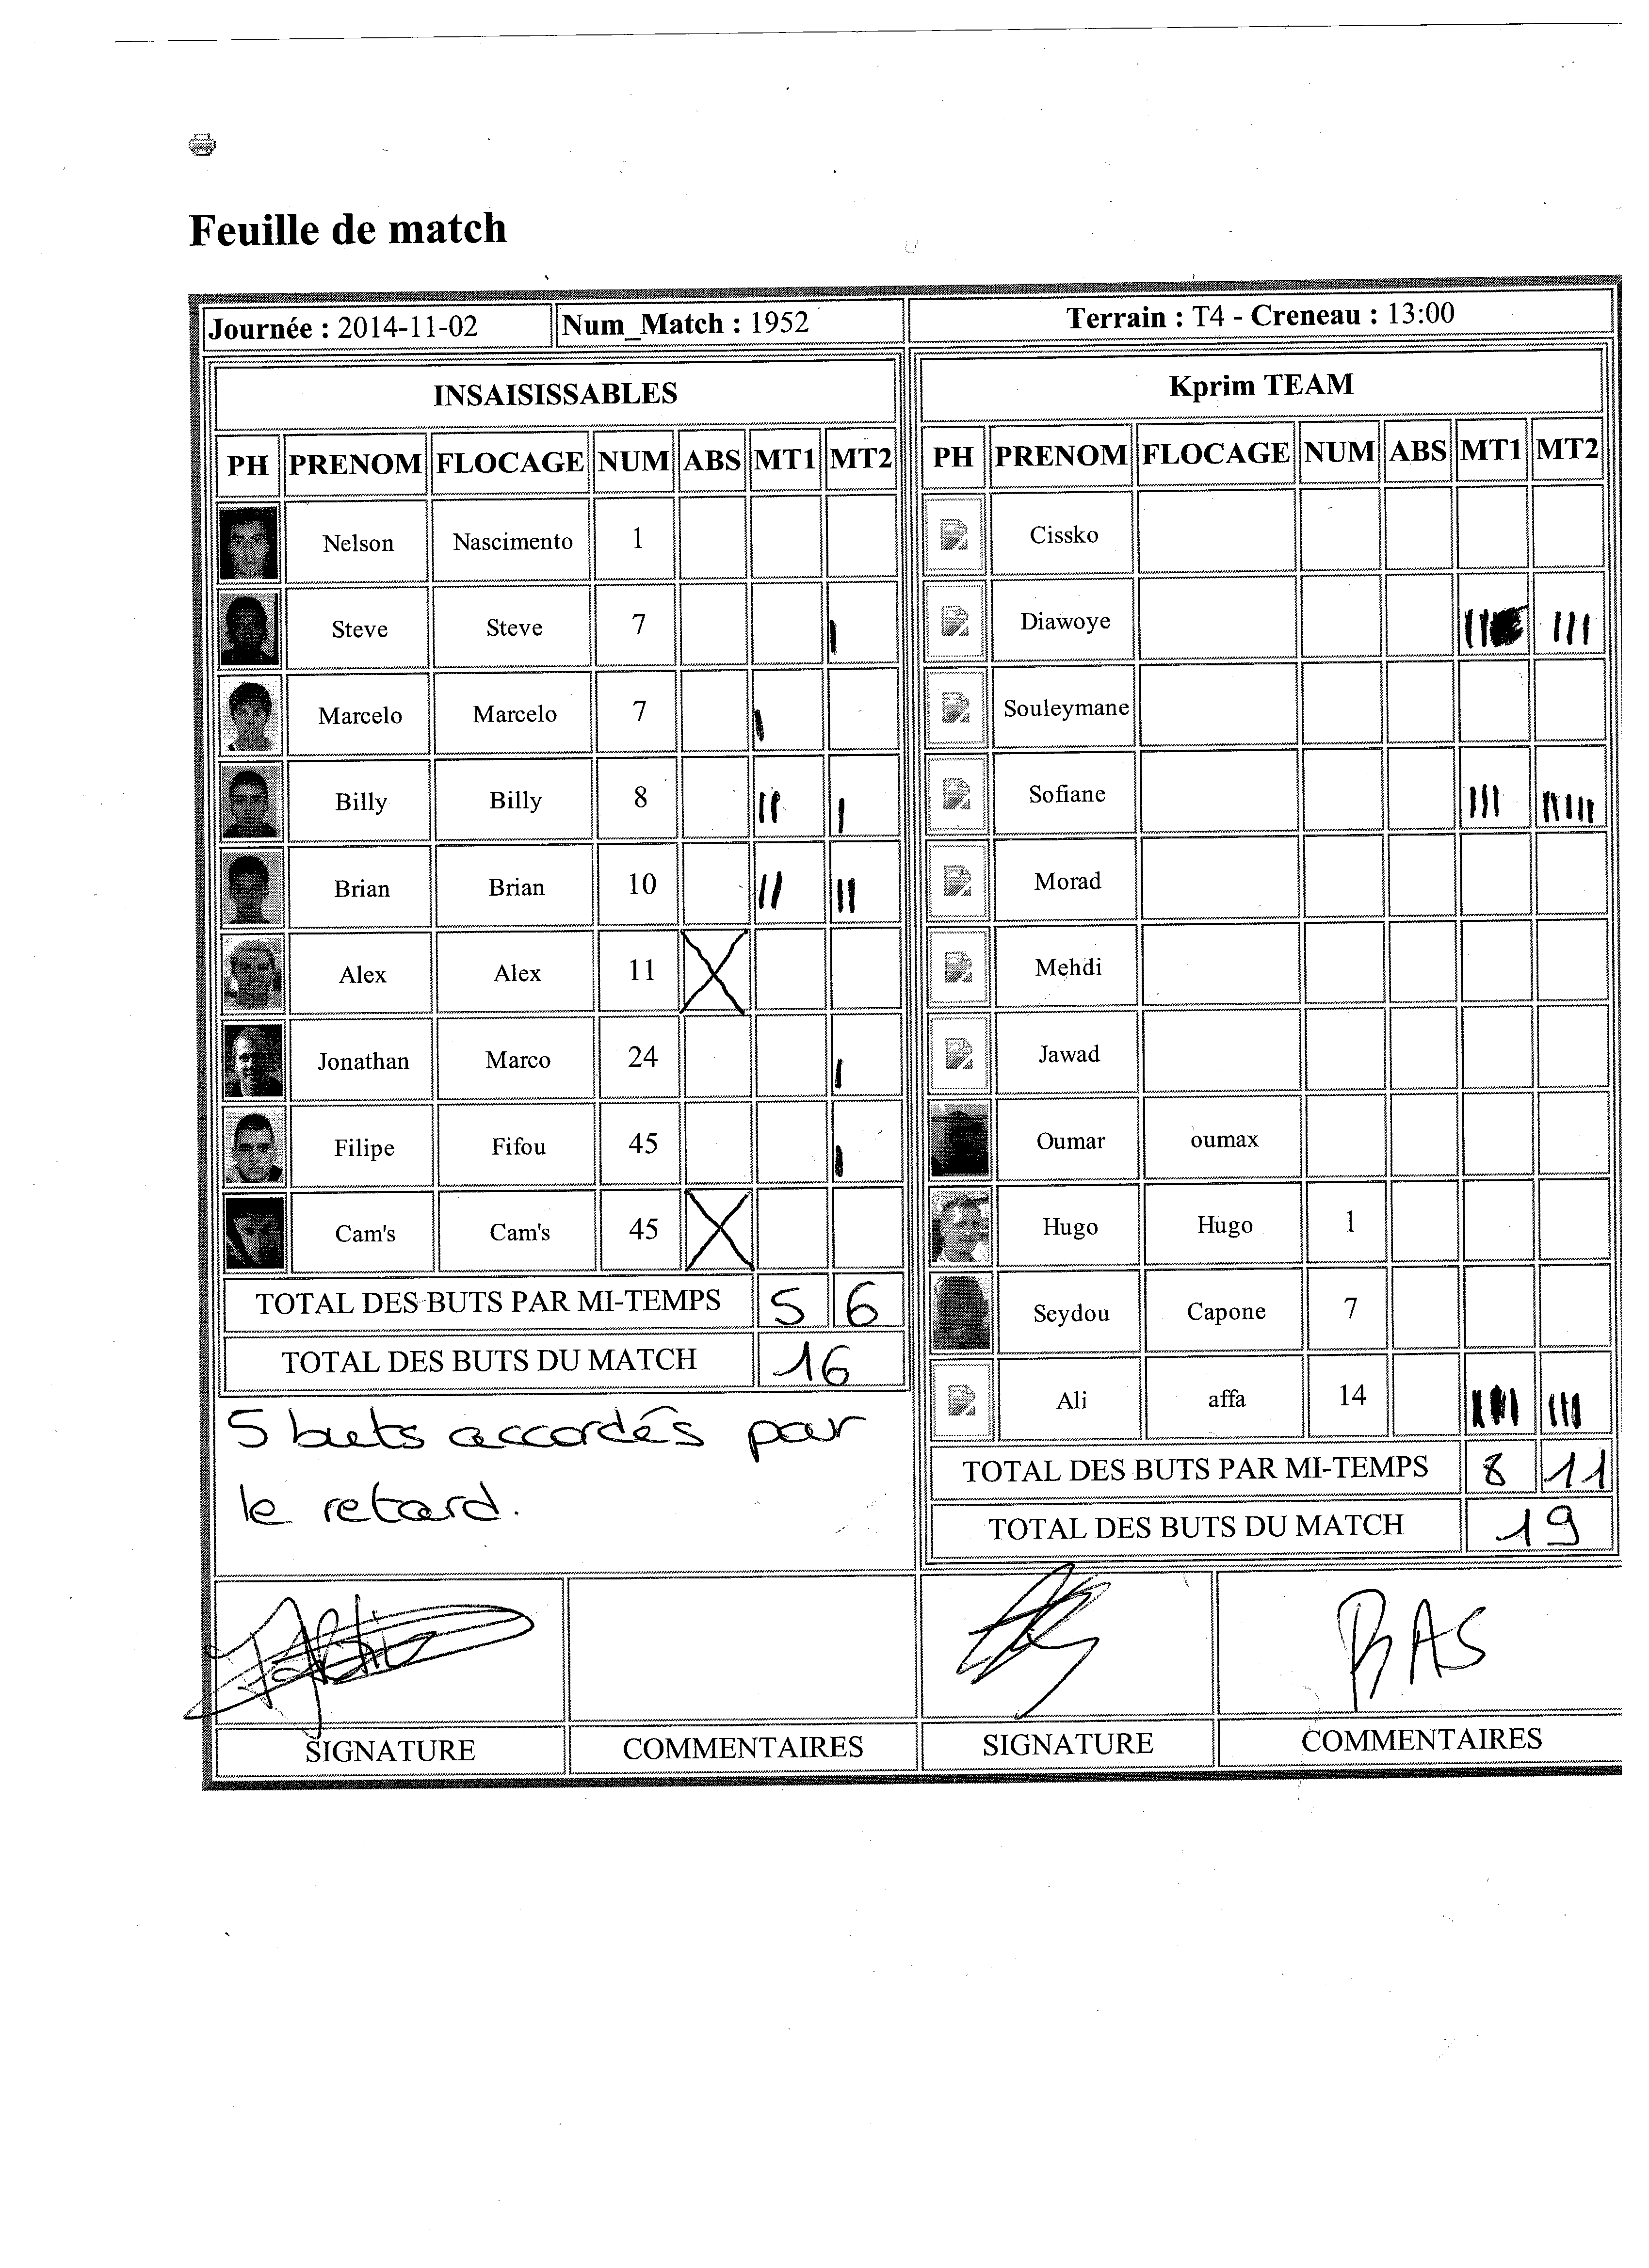 Feuille de match
Journée : 2014-11-02 Num_Match : 1952 Terrain : T4 - Creneau : 13:00
INSAISISSABLES
PH PRENOM FLOCAGE NUM ABS MT1 MT2
Nelson Nascimento 1
Steve Steve 7
Marcelo Marcelo 7
Billy Billy 8
Brian Brian 10
Alex Alex 11
Jonathan Marco 24
Filipe Fifou 45
Cam's Cam's 45
TOTAL DES BUTS PAR MI-TEMPS 5 6
TOTAL DES BUTS DU MATCH 16
5 buts accordés par
le retard.
Kprim TEAM
PH PRENOM FLOCAGE NUM ABS MT1 MT2
Cissko
Diawoye
Souleymane
Sofiane
Morad
Mehdi
Jawad
Oumar oumax
Hugo Hugo 1
Seydou Capone 7
Ali affa 14
TOTAL DES BUTS PAR MI-TEMPS 8 11
TOTAL DES BUTS DU MATCH 19
RAS
SIGNATURE COMMENTAIRES SIGNATURE COMMENTAIRES